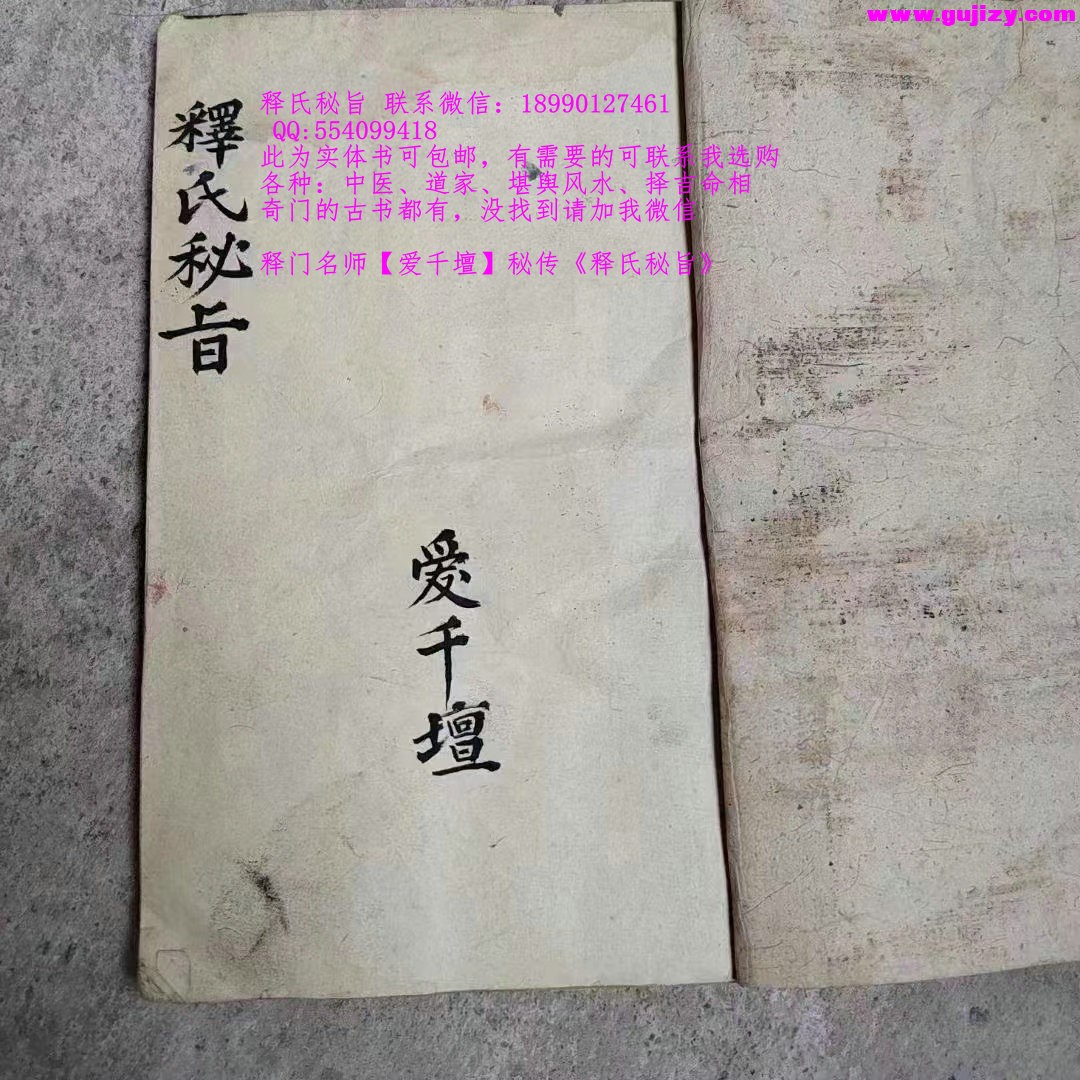 www.gujizy.com
釋氏秘旨
释氏秘旨 联系微信：18990127461
QQ:554099418
此为实体书可包邮，有需要的可联系我选购
各种：中医、道家、堪舆风水、择吉命相
奇门的古书都有，没找到请加我微信
释门名师【爱千壇】秘传《释氏秘旨》
爱千壇